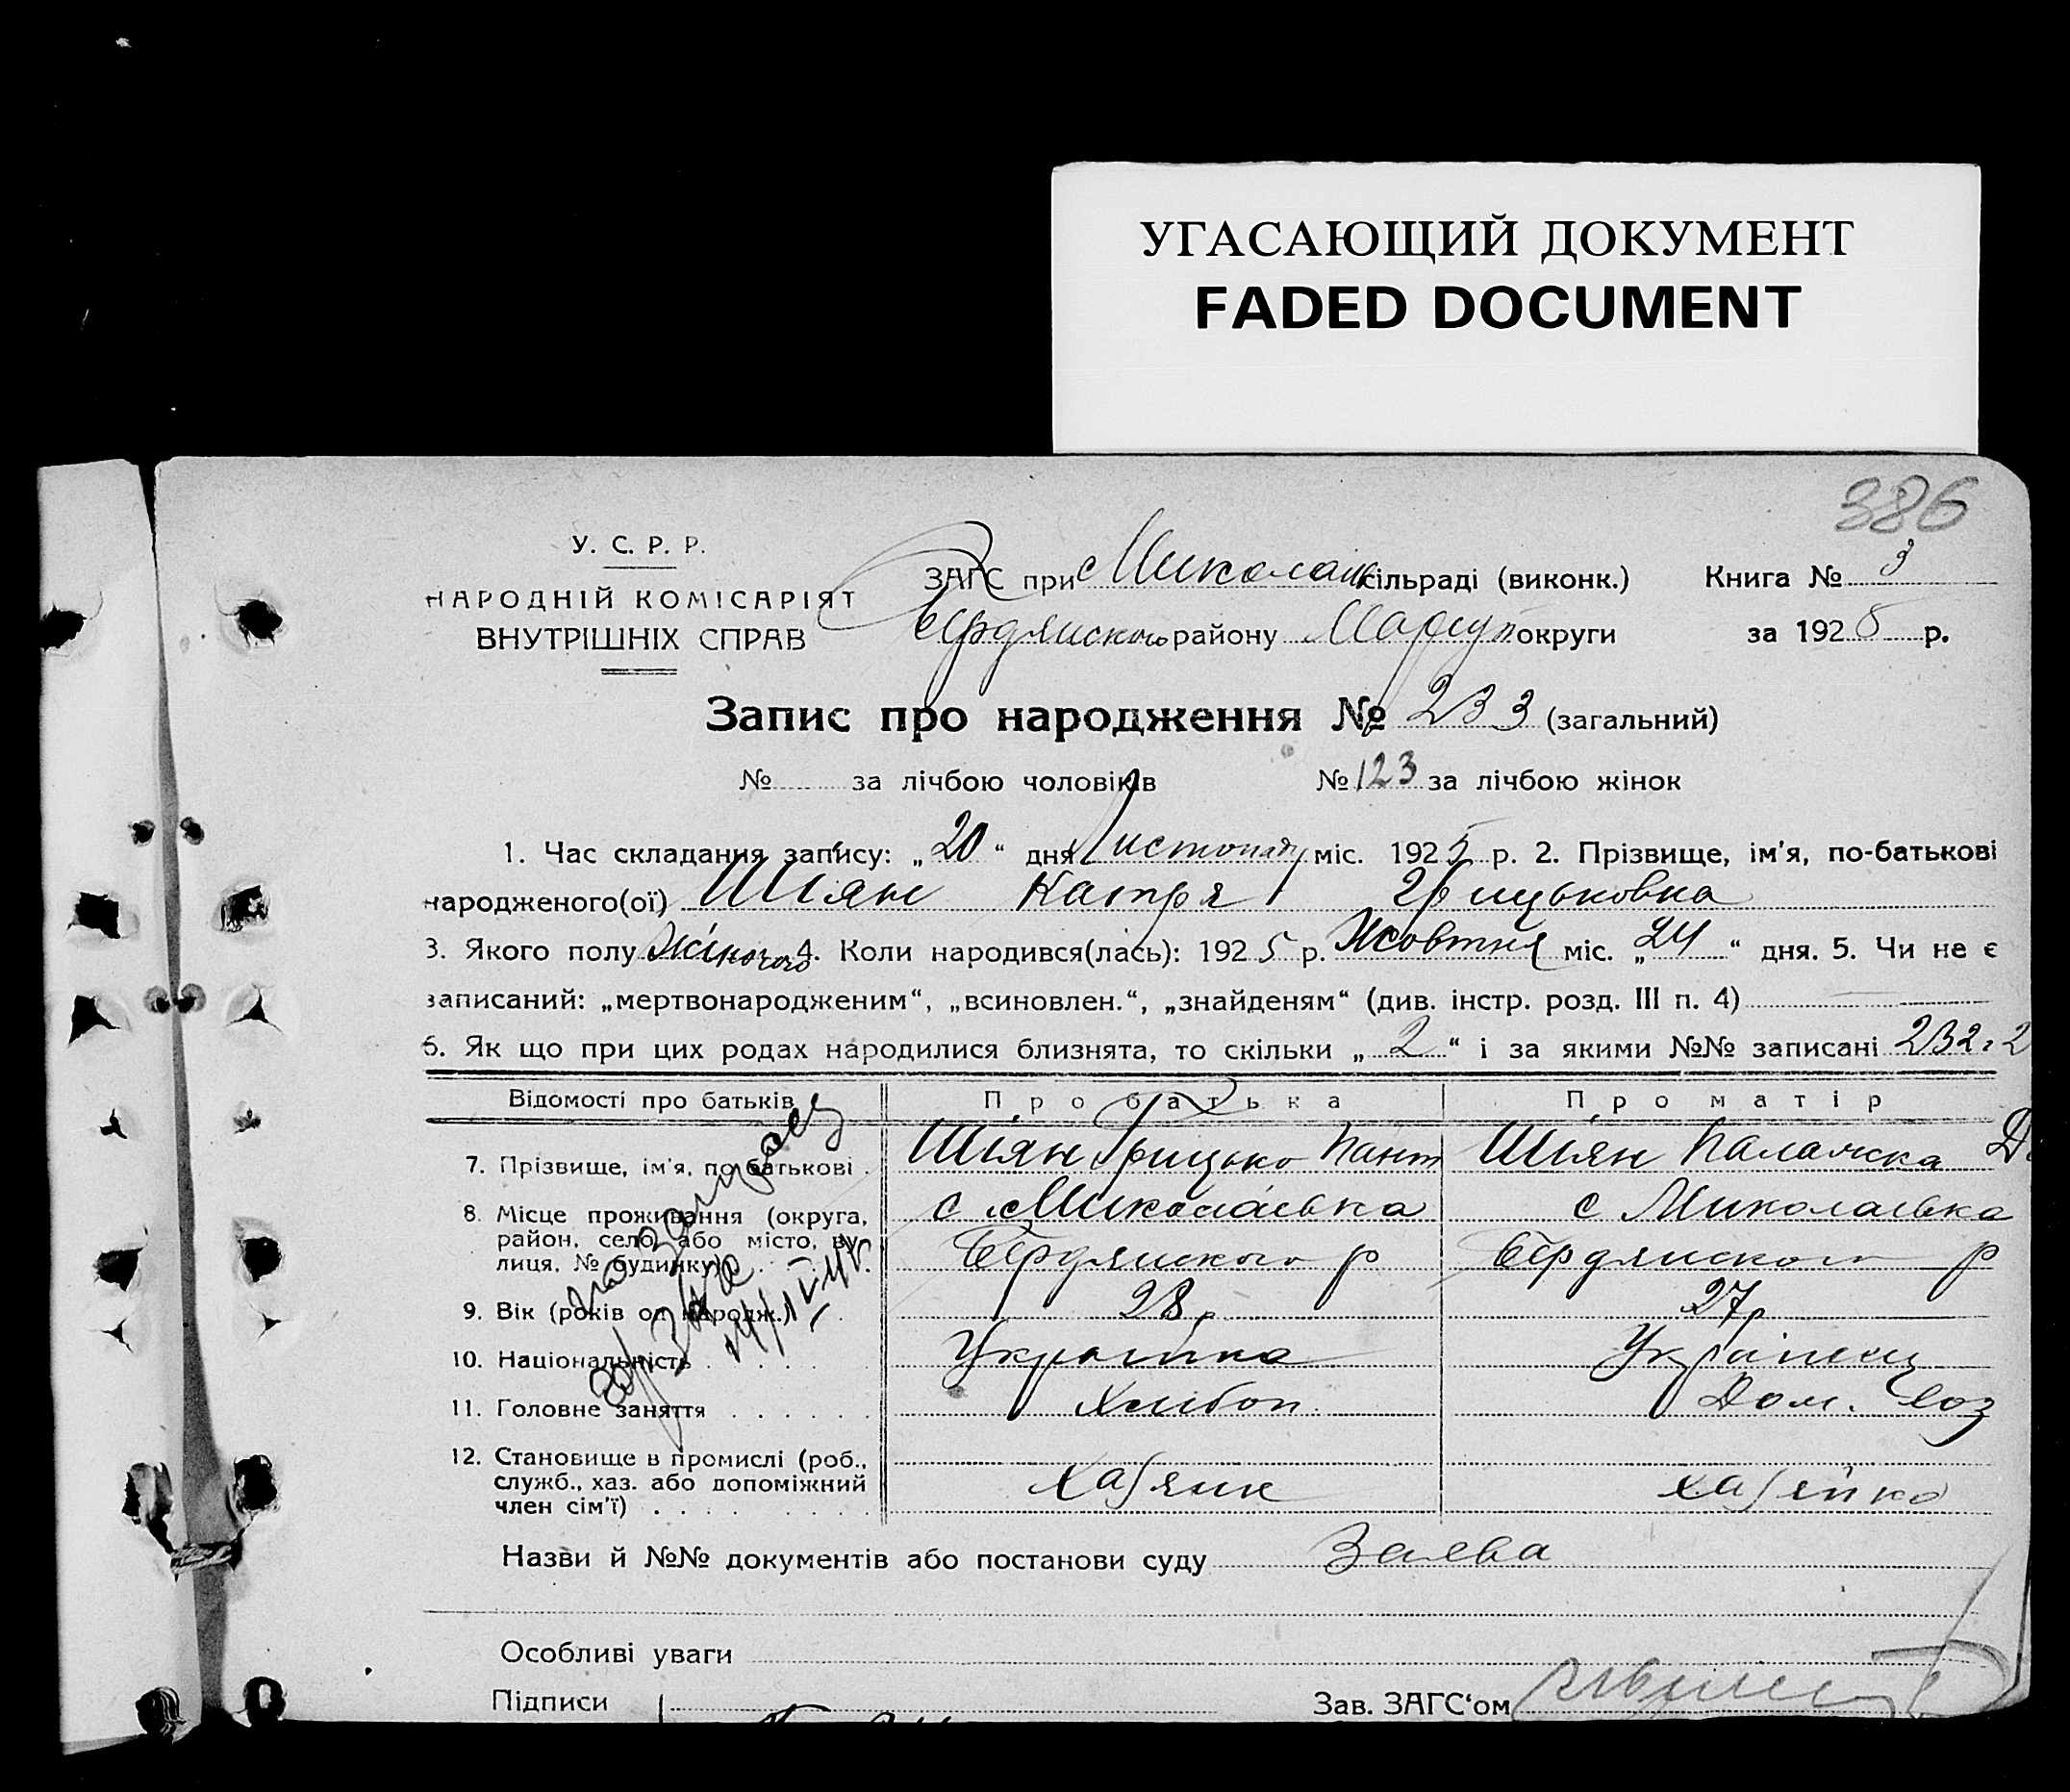 УГАСАЮЩИЙ ДОКУМЕНТ
FADED DOCUMENT
386
У. С. Р. Р.
НАРОДНІЙ КОМІСАРІЯТ
ВНУТРІШНІХ СПРАВ
ЗАГС при с Миколаїв сільраді (виконк.) Книга № 3
Бердянского району Маріуп округи за 1925 р.
Запис про народження № 233 (загальний)
№ за лічбою чоловіків № 123 за лічбою жінок
1. Час складання запису: „20“ дня Листопаду міс. 1925 р. 2. Прізвище, ім'я, по-батькові
народженого(ої) Шіян Катря Грицьковна
3. Якого полу жіночого 4. Коли народився(лась): 1925 р. Жовтня міс. „24“ дня. 5. Чи не є
записаний: „мертвонародженим“, „всиновлен.“, „знайденям“ (див. інстр. розд. III п. 4)
6. Як що при цих родах народилися близнята, то скільки „2“ і за якими №№ записані 232 і 2
Відомості про батьків Про батька Про матір
7. Прізвище, ім'я, по батькові Шіян Грицько Пант Шіян Палажка
8. Місце проживання (округа, район, село, або місто, вулиця, № будинку) с Миколаївка Бердянского р с Миколаївка Бердянского р
9. Вік (років од народж.) 28 р 27 р
10. Національність Українка Українец
11. Головне заняття Хлібоп. Дом. Хоз
12. Становище в промислі (роб., служб., хаз. або допоміжний член сім'ї) Хазяин хазяйка
Назви й №№ документів або постанови суду Заява
Особливі уваги
Підписи Зав. ЗАГС'ом